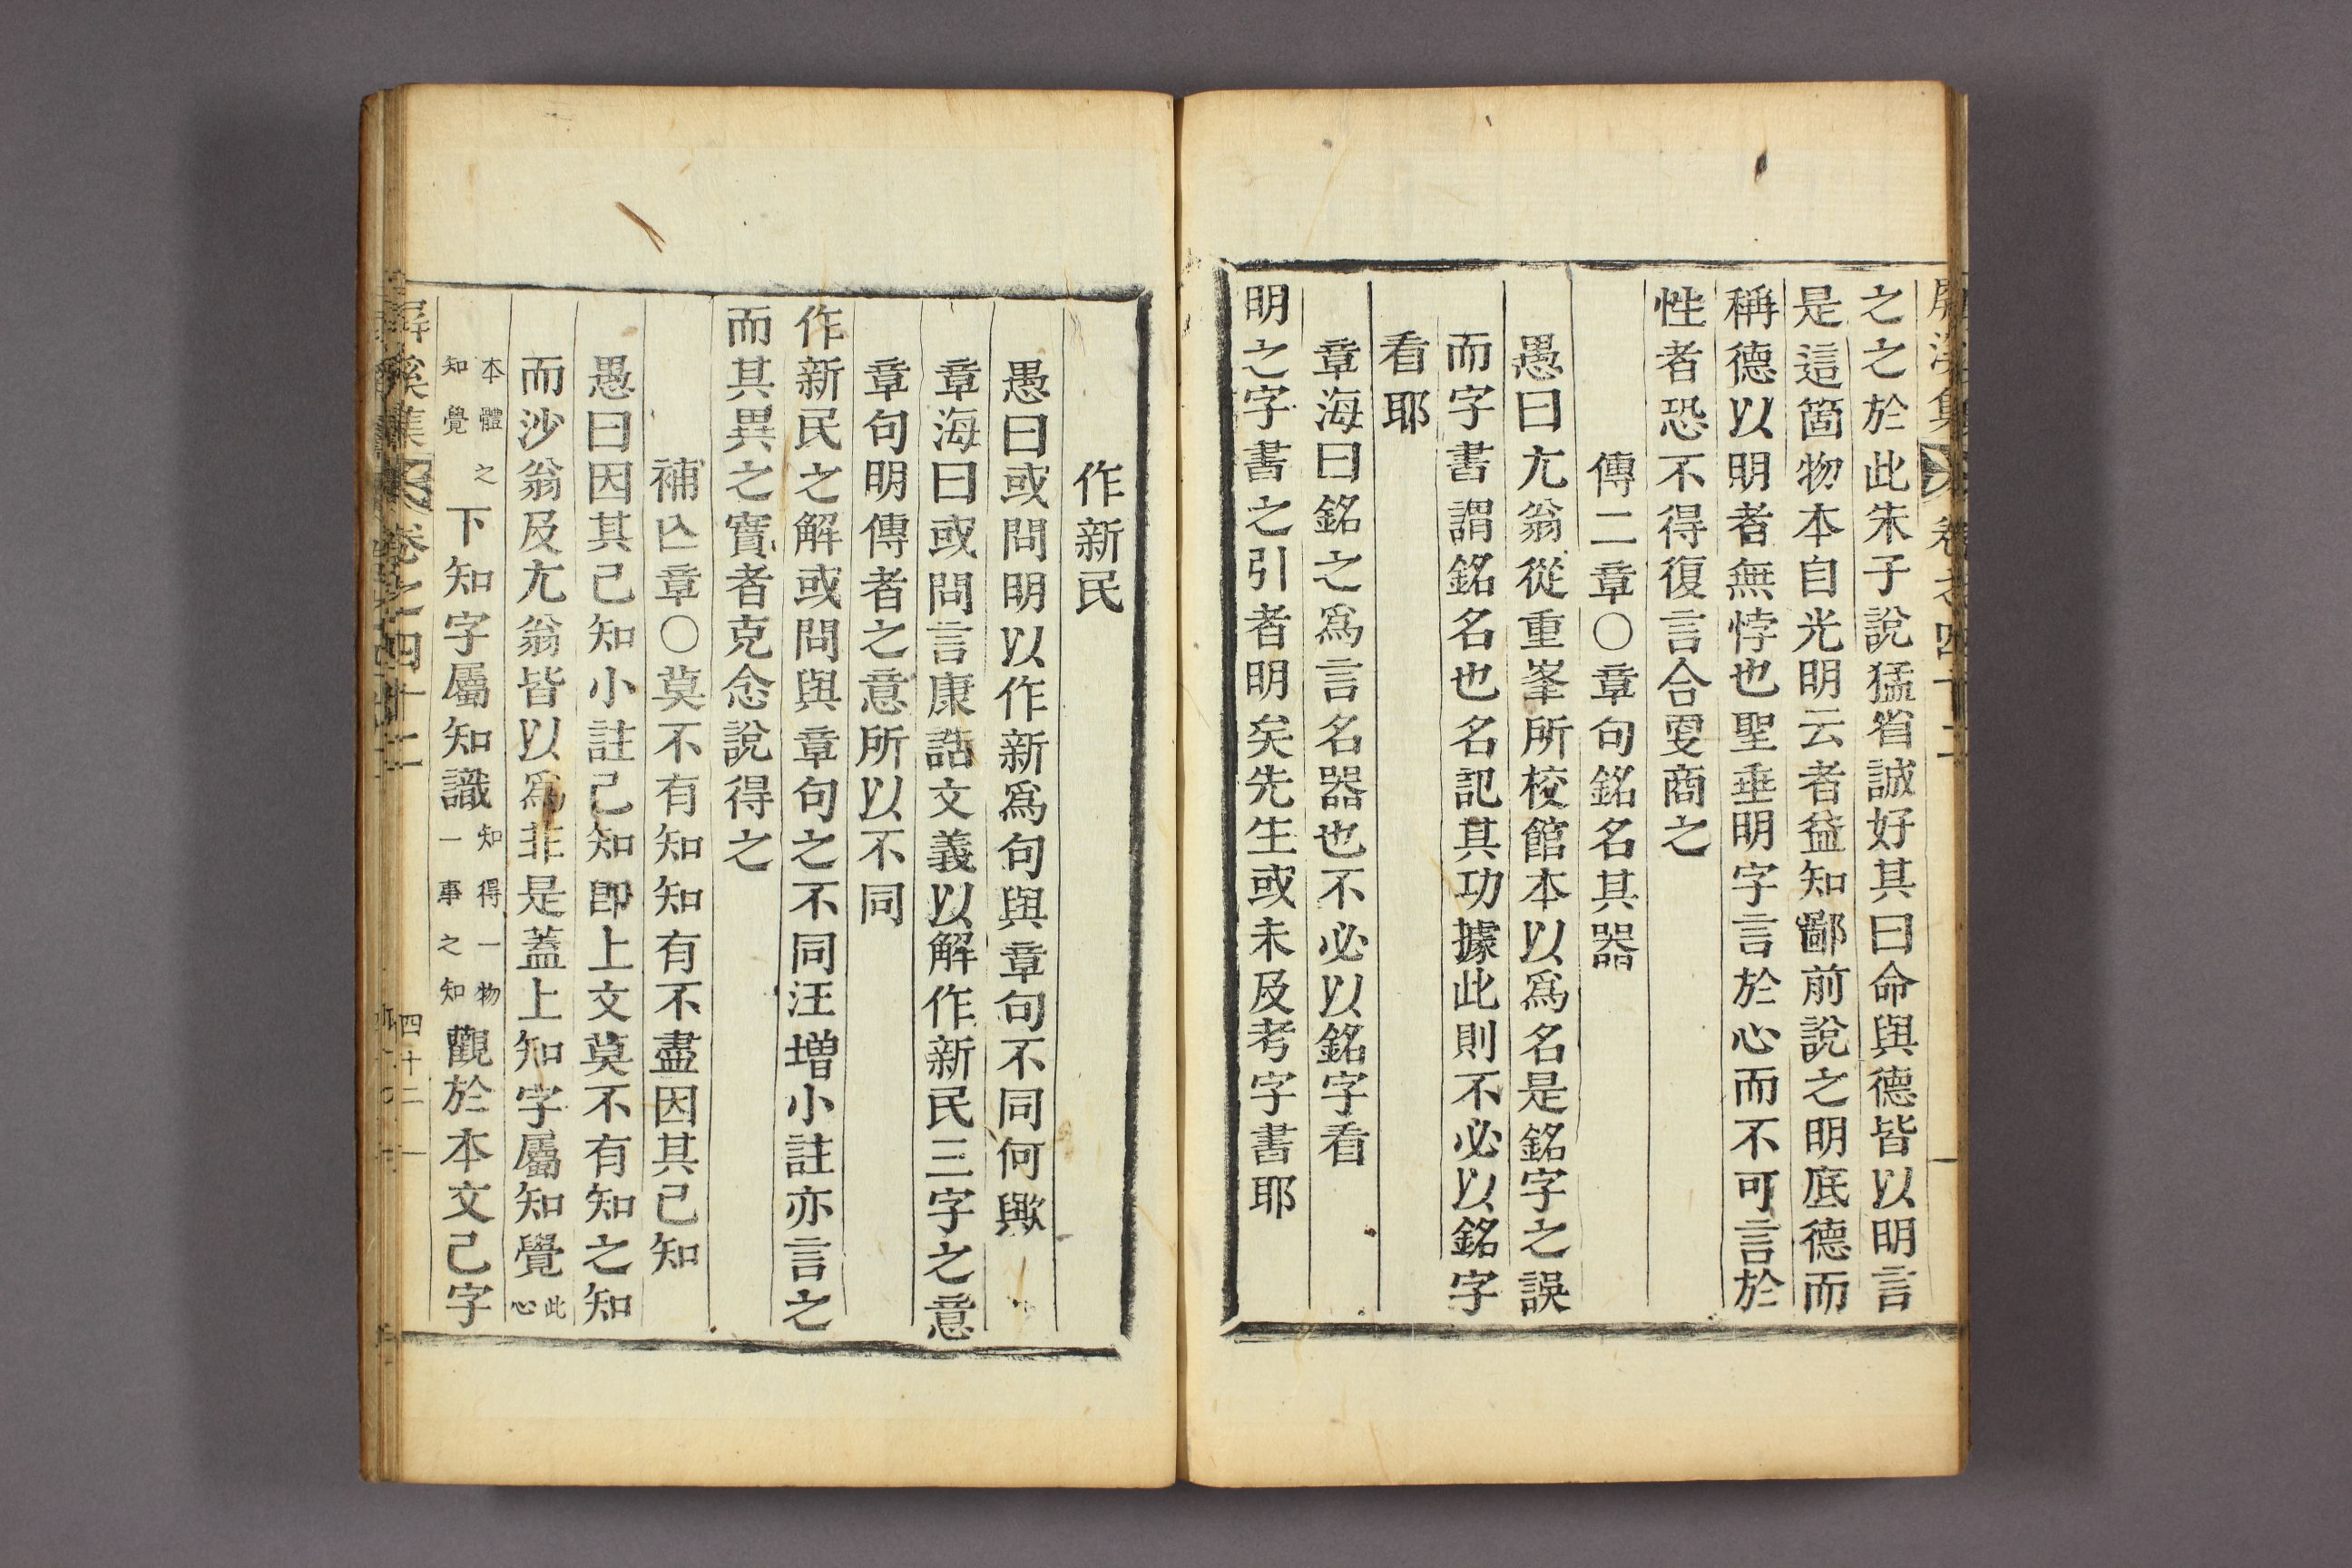 屏溪集 卷之四十二
之之於此朱子說猛省誠好其曰命與德皆以明言
是這箇物本自光明云者益知鄙前說之明底德而
稱德以明者無悖也聖垂明字言於心而不可言於
性者恐不得復言合更商之
傳二章○章句銘名其器
愚曰尤翁從重峯所校館本以爲名是銘字之誤
而字書謂銘名也名記其功據此則不必以銘字
看耶
章海曰銘之爲言名器也不必以銘字看
明之字書之引者明矣先生或未及考字書耶
作新民
愚曰或問明以作新爲句與章句不同何歟
章海曰或問言康誥文義以解作新民三字之意
章句明傳者之意所以不同
作新民之解或問與章句之不同汪增小註亦言之
而其異之實者克念說得之
補亡章○莫不有知知有不盡因其已知
愚曰因其已知小註已知卽上文莫不有知之知
而沙翁及尤翁皆以爲非是蓋上知字屬知覺此心
本體之知覺下知字屬知識知得一物一事之知觀於本文已字
屏溪集 卷之四十二 四十二